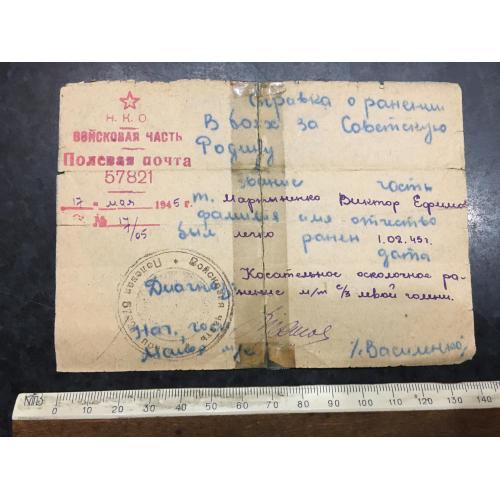 Н. К. О.
ВОЙСКОВАЯ ЧАСТЬ
Полевая почта
57821
17 " мая 1945 г.
№ 17/05
Справка о ранении
В боях за Советскую
Родину
звание часть
т. Мартыненко Виктор Ефимов
фамилия имя отчество
был легко ранен 1.02.45г.
дата
Диагноз Касательное осколочное ра-
нение м/т с/з левой голени.
Нач.
Майор м/с /Василенко/
Войсковая часть * Полевая
0 10 20 30 40 50 60 70 80 90 100 110 120 130 140